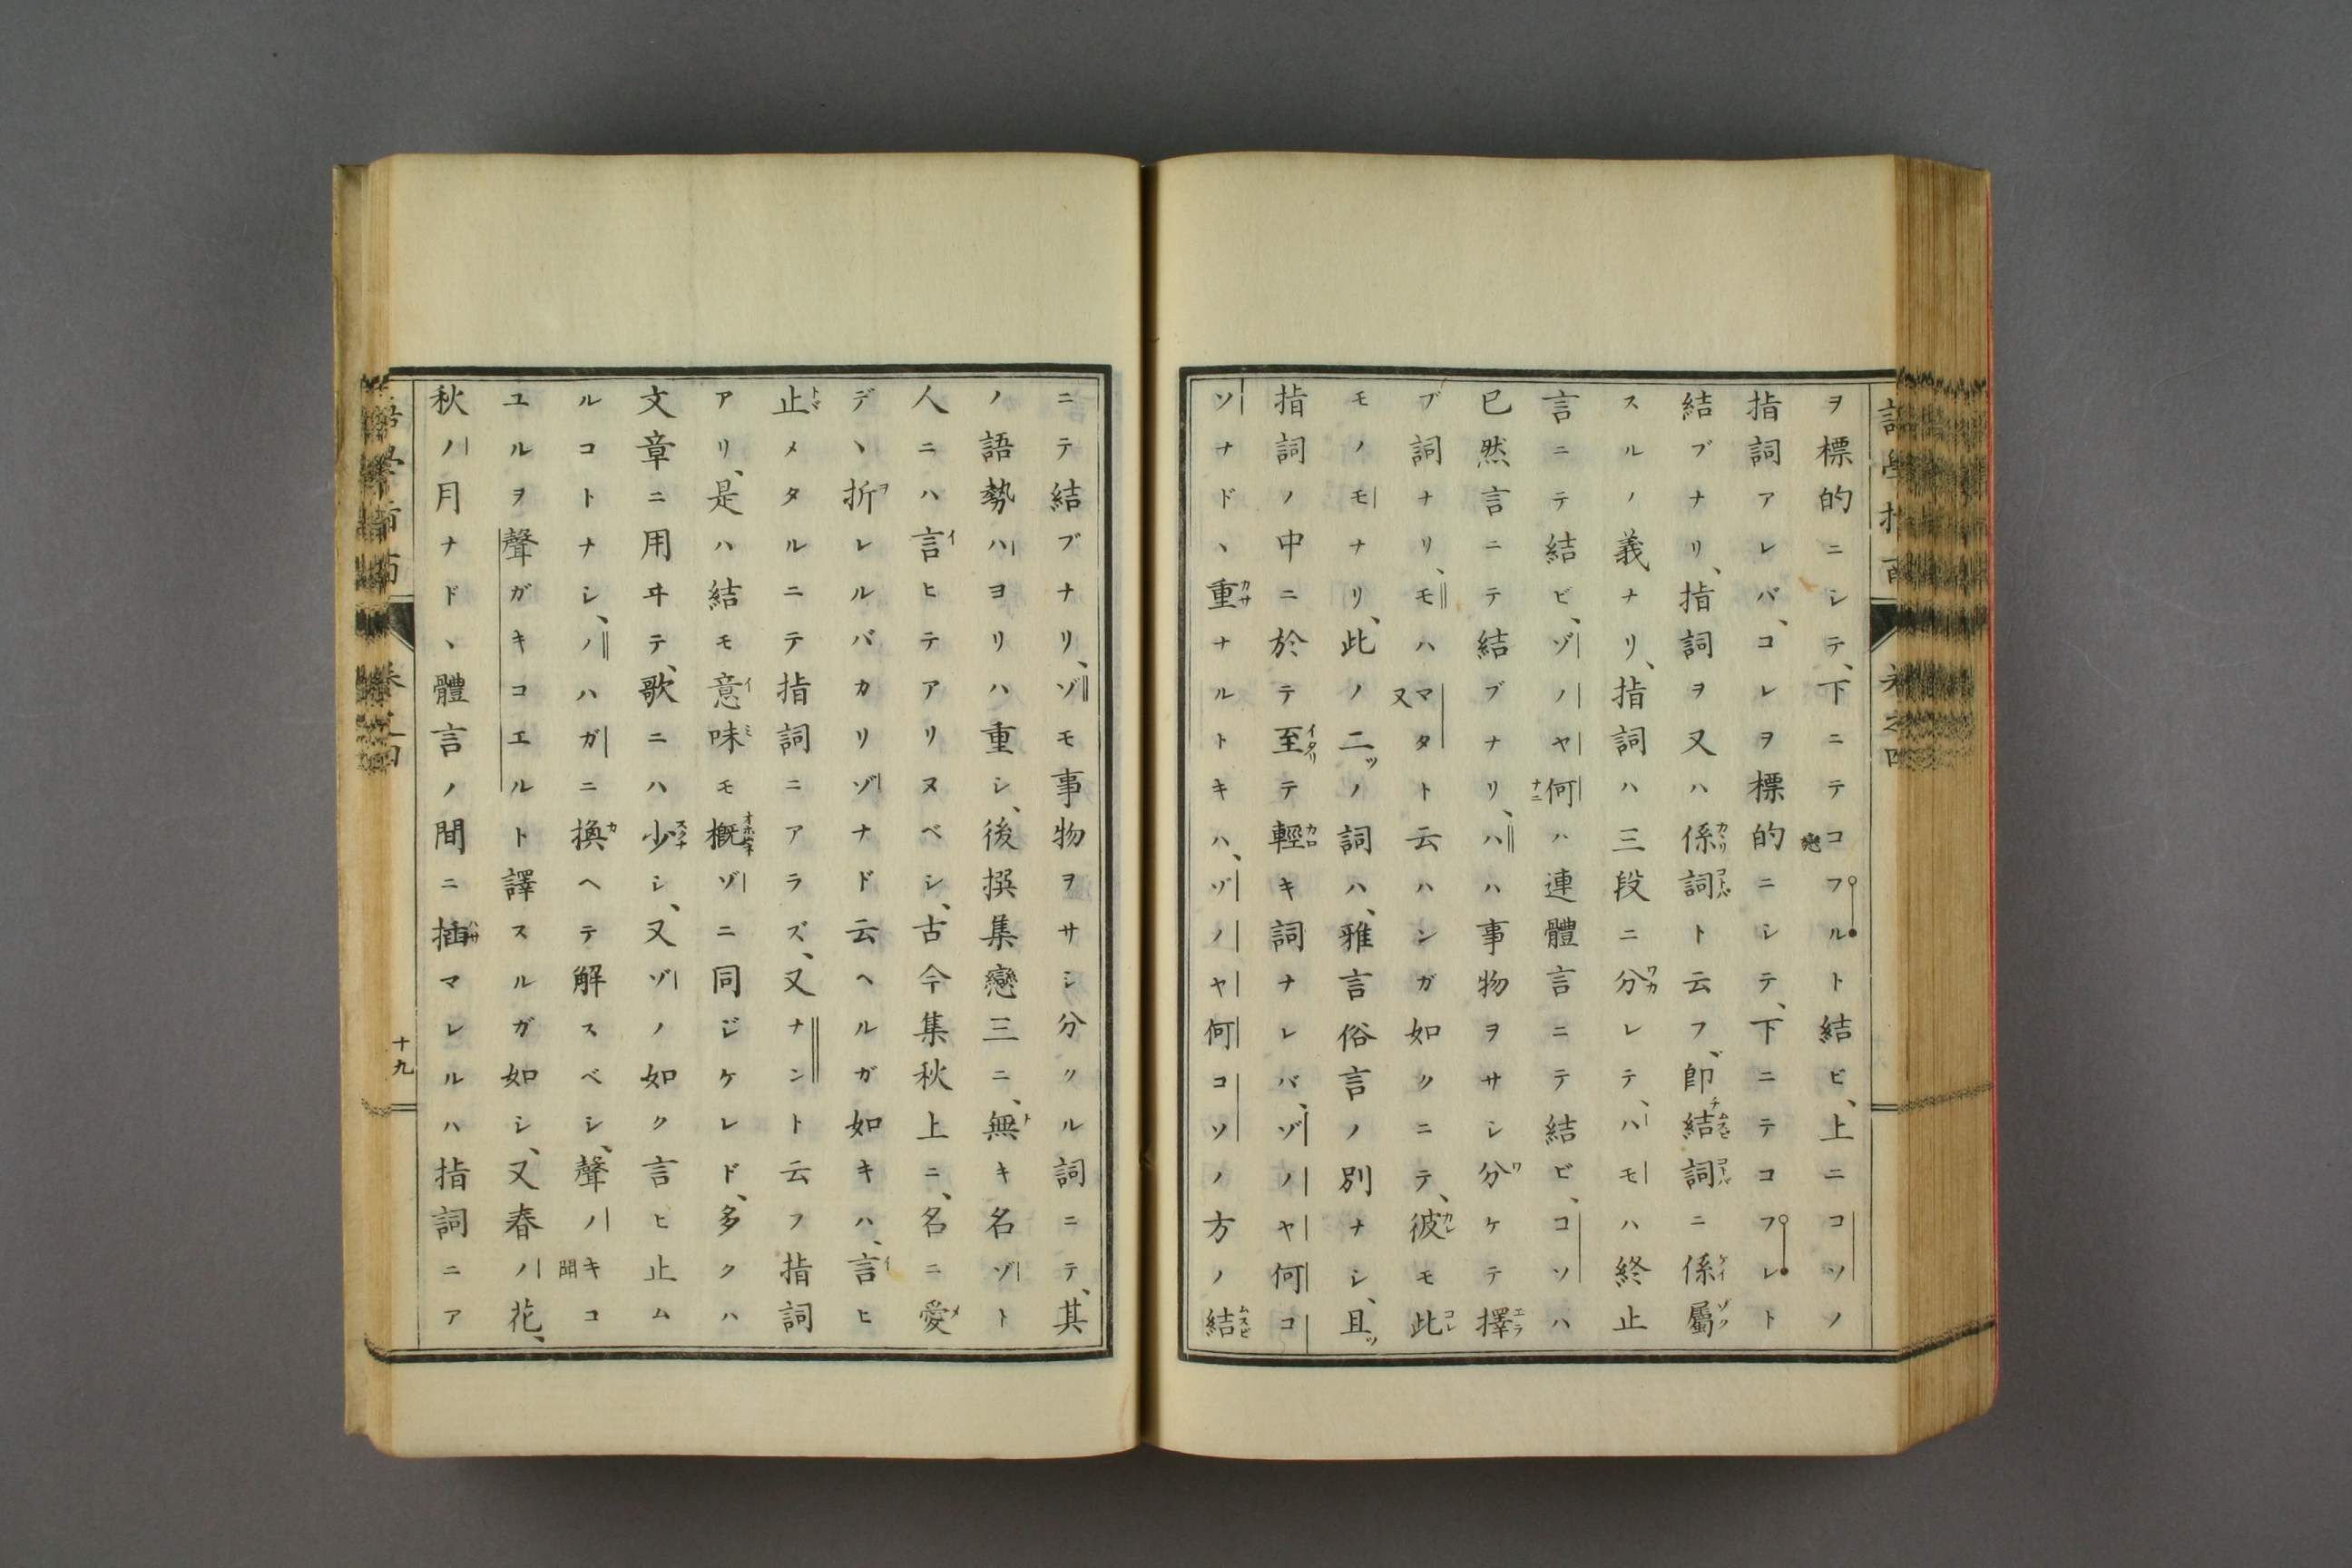 ヲ標的ニシテ、下ニテコフルト結ビ、上ニコソノ
指詞アレバ、コレヲ標的ニシテ、下ニテコフレト
結ブナリ、指詞ヲ又ハ係詞ト云フ、卽チ結詞ニ係屬
スルノ義ナリ、指詞ハ三段ニ分レテ、ハモハ終止
言ニテ結ビ、ゾノヤ何ハ連體言ニテ結ビ、コソハ
已然言ニテ結ブナリ、ハハ事物ヲサシ分ケテ擇
ブ詞ナリ、モハマタト云ハンガ如クニテ、彼モ此
モノモナリ、此ノ二ツノ詞ハ、雅言俗言ノ別ナシ、且ツ
指詞ノ中ニ於テ至テ輕キ詞ナレバ、ゾノヤ何コ
ソナドヽ重ナルトキハ、ゾノヤ何コソノ方ノ結
ニテ結ブナリ、ゾモ事物ヲサシ分クル詞ニテ、其
ノ語勢ハハヨリハ重シ、後撰集戀三ニ、無キ名ゾト
人ニハ言ヒテアリヌベシ、古今集秋上ニ、名ニ愛
デヽ折レルバカリゾナド云ヘルガ如キハ、言ヒ
止メタルニテ指詞ニアラズ、又ナント云フ指詞
アリ、是ハ結モ意味モ槪ゾニ同ジケレド、多クハ
文章ニ用ヰテ、歌ニハ少シ、又ゾノ如ク言ヒ止ム
ルコトナシ、ノハガニ換ヘテ解スベシ、聲ノキコ
ユルヲ聲ガキコエルト譯スルガ如シ、又春ノ花、
秋ノ月ナドヽ體言ノ間ニ插マレルハ指詞ニア
十九